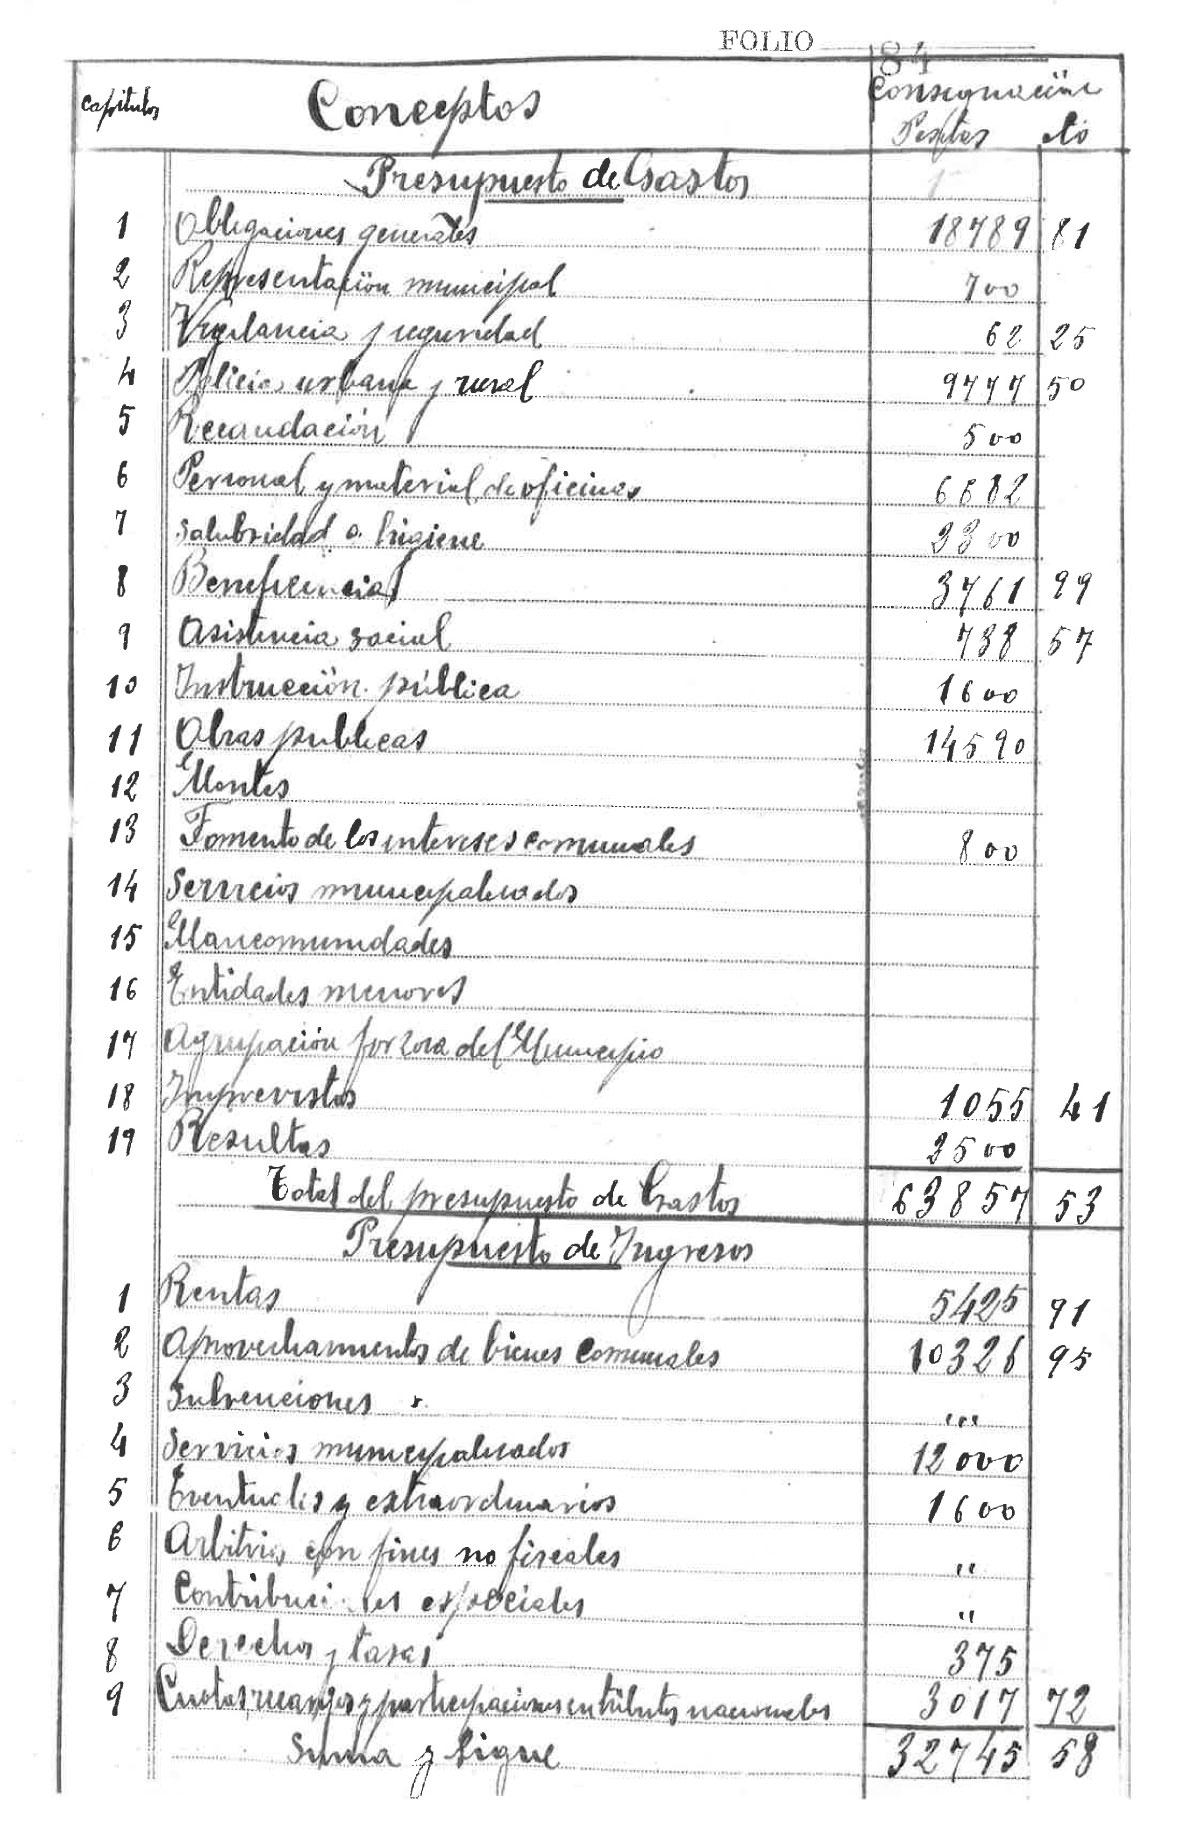 FOLIO 84
Capitulos Conceptos Consignación
Pesetas cts
Presupuesto de Gastos
1 Obligaciones generales 18789 81
2 Representación municipal 700
3 Vigilancia y seguridad 62 25
4 Policia urbana y rural 9777 50
5 Recaudación 500
6 Personal y material de oficinas 6682
7 Salubridad e higiene 2300
8 Beneficencia 3761 99
9 Asistencia social 738 57
10 Instrucción pública 1600
11 Obras publicas 14590
12 Montes
13 Fomento de los intereses comunales 800
14 Servicios municipalizados
15 Mancomunidades
16 Entidades menores
17 Agrupación forzosa del Municipio
18 Imprevistos 1055 41
19 Resultas 2500
Total del presupuesto de Gastos 63857 53
Presupuesto de Ingresos
1 Rentas 5425 91
2 Aprovechamientos de bienes comunales 10326 95
3 Subvenciones "'
4 Servicios municipalizados 12000
5 Eventuales y extraordinarios 1600
6 Arbitrios con fines no fiscales "
7 Contribuciones especiales "
8 Derechos y tasas 375
9 Cuotas recargos y participaciones en tributos nacionales 3017 72
Suma y sigue 32745 58